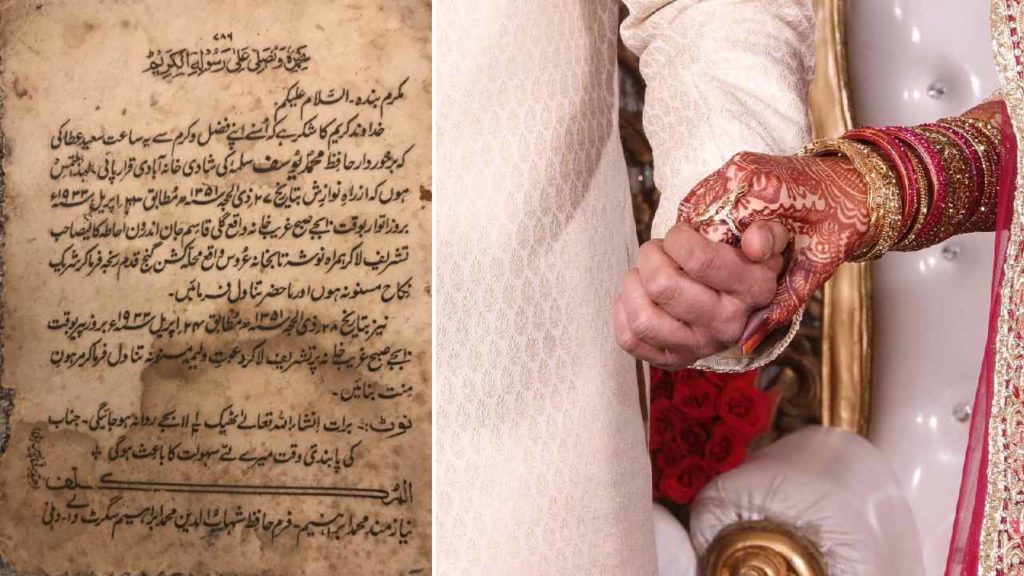 ۷۸۶
نحمدہ ونصلی علیٰ رسولہ الکریم
مکرم بندہ۔ السّلام علیکم
خداوند کریم کا شکر ہے کہ اُسنے اپنے فضل وکرم سے یہ ساعت سعید عطا کی
کہ برخوردار حافظ محمد یوسف سلمہٗ کی شادی خانہ آبادی قرار پائی
ہوں کہ ازراہِ نوازش بتاریخ ۲۷ ذی الحجہ ۱۳۵۱ھ مُطابق ۲۳ اپریل ۱۹۳۳ء
بروز اتوار بوقت ۱۰ بجے صبح غریب خانہ واقع گلی قاسم جان اندرون احاطہ کالیصاحب
تشریف لاکر ہمراہ نوشہ تا بخانہ عروس واقع محلہ کشن گنج قدم رنجہ فرماکر شریک
نکاح مسنونہ ہوں اور ماحضر تناول فرمائیں۔
نیز بتاریخ ۲۸ ذی الحجہ ۱۳۵۱ھ مطابق ۲۴ اپریل ۱۹۳۳ء بروز پیر بوقت
۱۰ بجے صبح غریب خانہ پر تشریف لاکر دعوت ولیمہ مسنونہ تناول فرماکر مرہون
منت بنائیں۔
نوٹ:۔ برات انشاراللہ تعالےٰ ٹھیک ۱۱ بجے روانہ ہوجائیگی۔ جناب
کی پابندی وقت میرے لئے سہولت کا باعث ہوگی
المُکلف
نیازمند محمد ابراہیم۔ فرم حافظ شہاب الدین محمد ابراہیم سگرٹ والے۔ دہلی